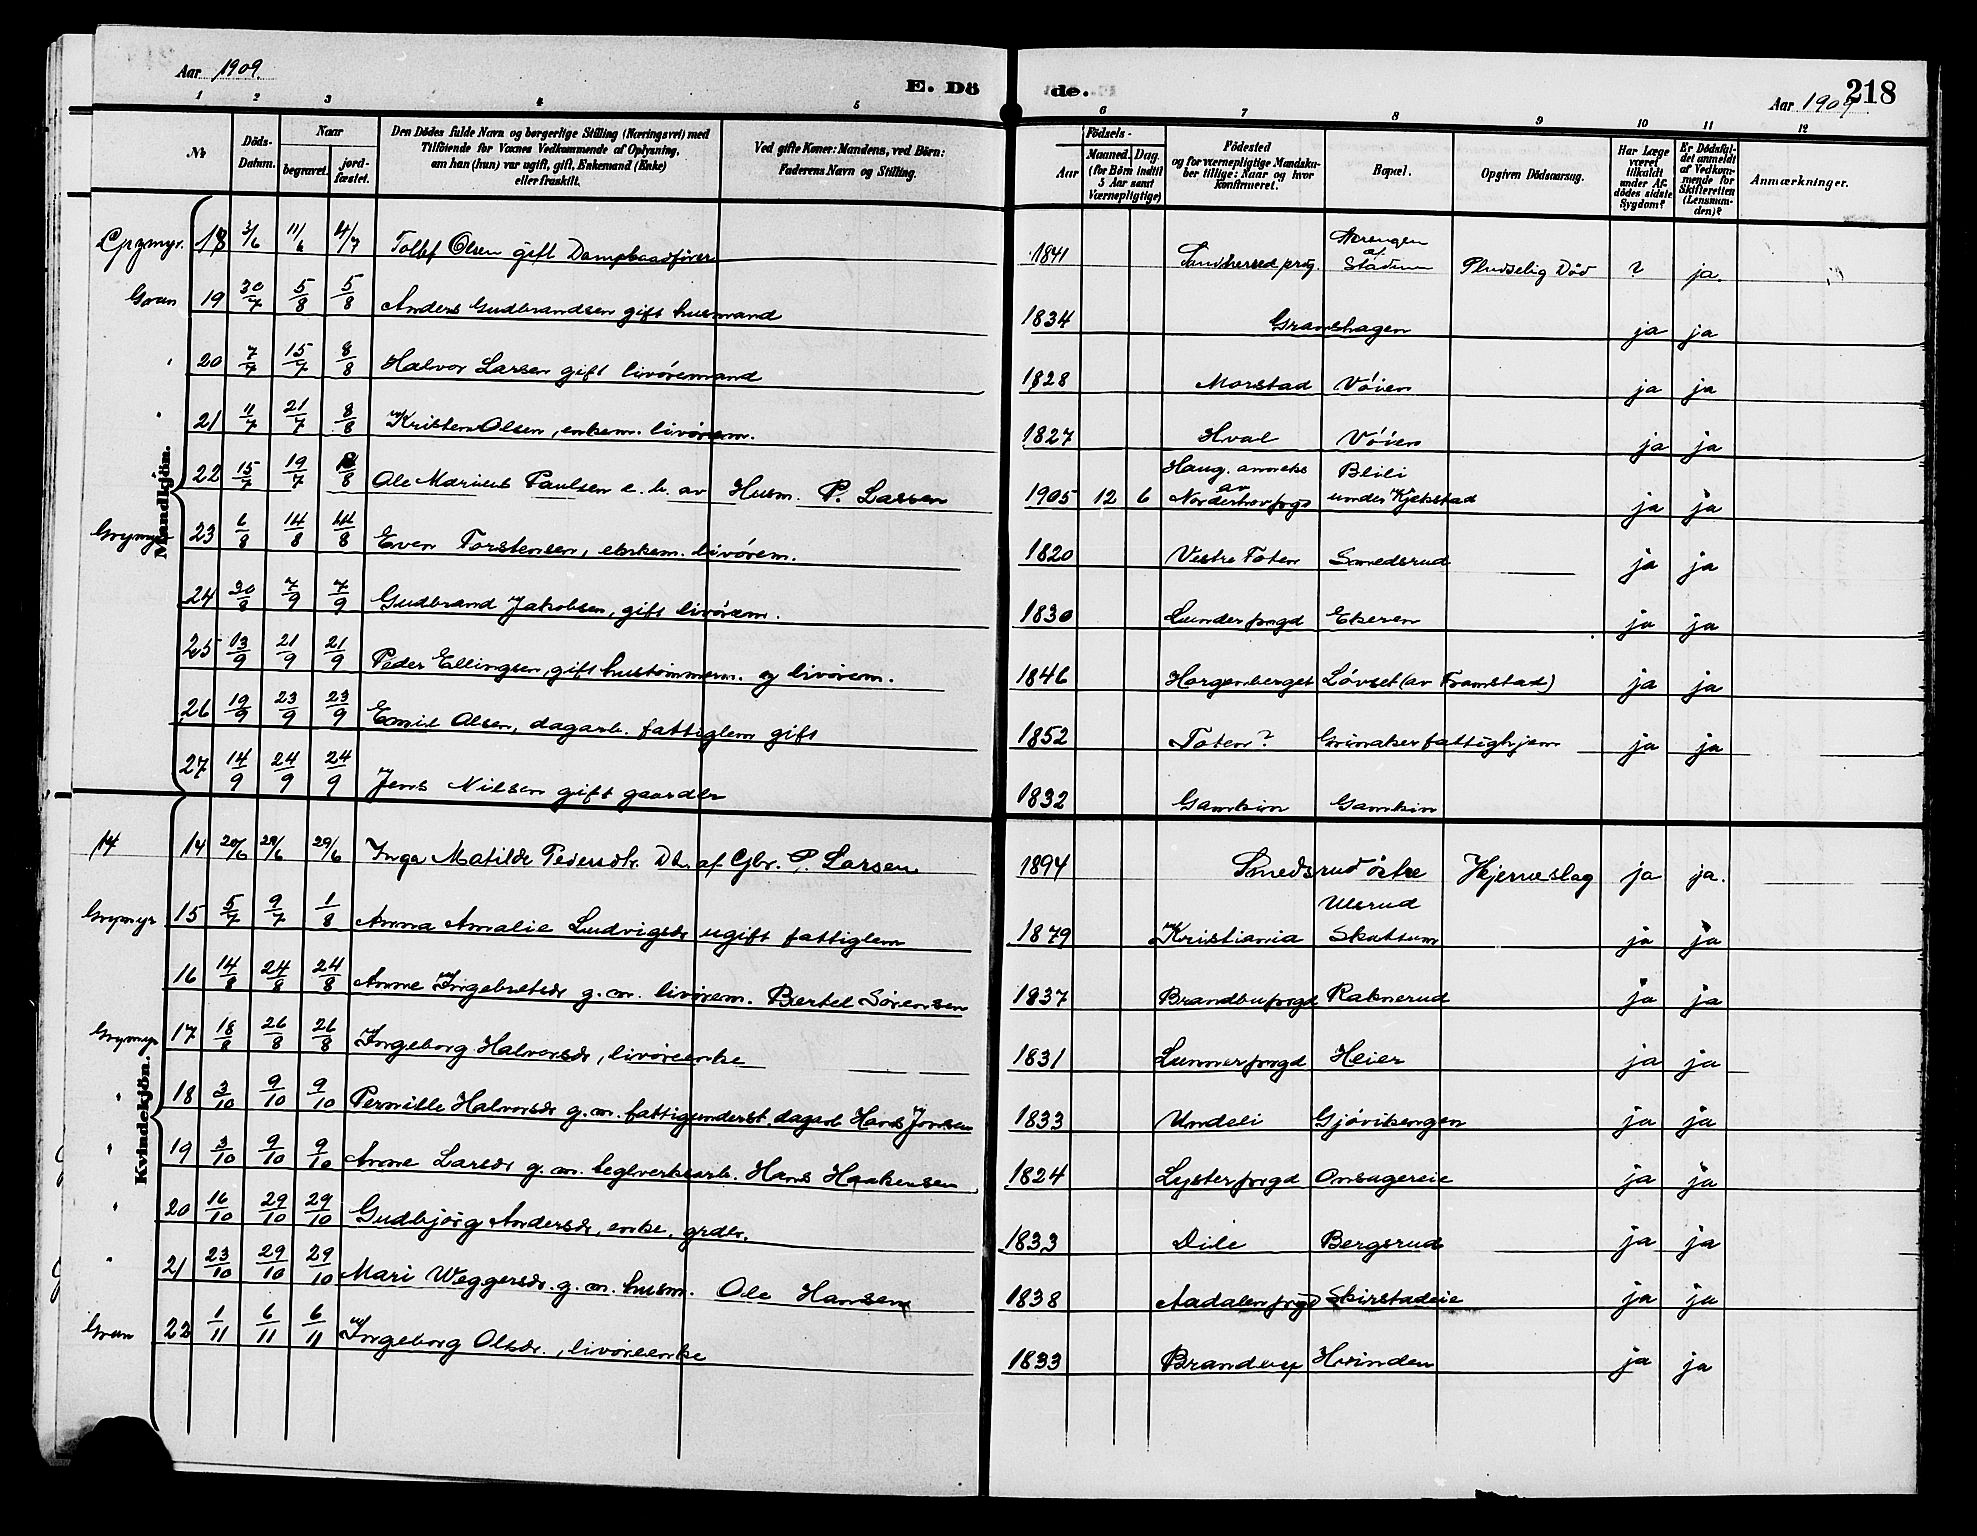 Aar 1909.
E. Dö
de.
218
Aar 1909.
1 2 3 4 5 6 7 8 9 10 11 12
No
Döds-Datum.
Naar
begravet.
jord-fæstet.
Den Dödes fulde Navn og borgerlige Stilling (Næringsvei) med
Tilföiende for Voxnes Vedkommende af Oplysning,
om han (hun) var ugift, gift, Enkemand (Enke)
eller fraskilt.
Ved gifte Koner: Mandens, ved Börn:
Faderens Navn og Stilling.
Födsels-
Aar
Maaned. Dag.
(for Börn indtil
5 Aar samt
Værnepligtige)
Födested
og for værnepligtige Mandska-
ber tillige: Naar og hvor
konfirmeret.
Bopæl.
Opgiven Dödsaarsag.
Har Læge
været
tilkaldt
under Af-
dödes sidste
Sygdom?
Er Dödsfal-
det anmeldt
af Vedkom-
mende for
Skifteretten
(Lensman-
den)?
Anmærkninger.
Mandkjön.
18 3/6 11/6 4/7 Tollef Olsen gift Dampbaadfører 1841 Sandherred prg. Strengen af Staden Pludselig Död ? ja.
Gran 19 30/7 5/8 5/8 Anders Gudbrandsen gift husmand 1834 Granshagen ja ja
" 20 7/7 15/7 8/8 Halvor Larsen gift livøremand 1828 Morstad Vøien ja ja
" 21 11/7 21/7 8/8 Kristen Olsen, enkem. livørem. 1827 Hval Vøien ja ja
22 15/7 19/7 8/8 Ole Marius Paulsen e. b. av Husm. P. Larsen 1905 12 6 Haug. anneks av Norderhov prgd Blili under Kjekstad ja ja
Grymyr 23 6/8 14/8 14/8 Even Torstensen, enkem. livørem. 1820 Vestre Toten Smedsrud ja ja
24 30/8 7/9 7/9 Gudbrand Jakobsen, gift livørem. 1830 Lunder prgd Ekeren ja ja
25 13/9 21/9 21/9 Peder Ellingsen, gift hustømmerm. og livørem. 1846 Horgenberget Løvset (av Framstad) ja ja
26 19/9 23/9 23/9 Emil Olsen, dagarb. fattiglem gift 1852 Toten? Grinaker fattighjem ja ja
27 14/9 24/9 24/9 Jens Nilsen gift gaardbr 1832 Gamkin Gamkin
Kvindekjön.
14 14 20/6 29/6 29/6 Inga Matilde Pedersdtr. Dt. af Gbr. P. Larsen 1894 Smedsrud östre Hjerneslag ja ja.
Grymyr 15 5/7 9/7 1/8 Anna Amalie Ludvigsdr ugift fattiglem 1879 Kristiania Ulsrud Skattum ja ja
16 14/8 24/8 24/8 Anne Ingebretsdr g. m. livørem. Bertel Sørensen 1837 Brandbu prgd Raknerud ja ja
Grymyr 17 18/8 26/8 26/8 Ingeborg Halvorsdr, livøreenke 1831 Lunner prgd Heier ja ja
" 18 3/10 9/10 9/10 Pernille Halvorsdr g. m. fattigunderst. dagarb Hans Jonsen 1833 Undeli Gjøvikengen ja ja
" 19 3/10 9/10 9/10 Anne Larsdr g. m. teglverksarb. Hans Haakensen 1824 Lyster prgd Onsagereie ja ja
" 20 16/10 29/10 29/10 Gudbjørg Andersdr, enke. grdbr. 1833 Dile Bergsrud ja ja
" 21 23/10 29/10 29/10 Mari Weggersdr. g. m. husm. Ole Hansen 1838 Aadalen prgd Skirstadeie ja ja
Gran 22 1/11 6/11 6/11 Ingeborg Olsdr., livøreenke 1833 Brandbu Hvinden ja ja